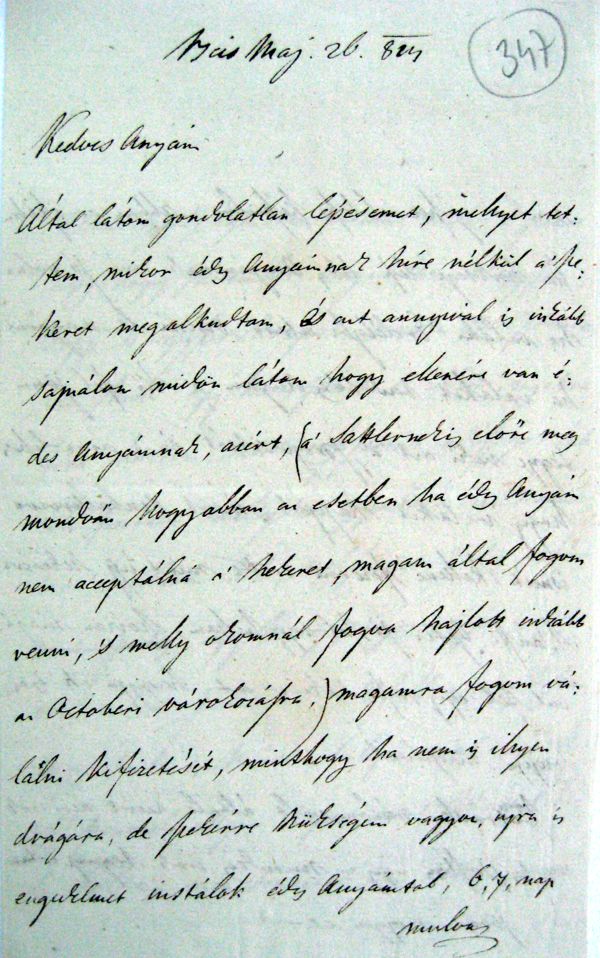 Bécs Maj. 26. 824
347
Kedves Anyám
Által látom gondolatlan lépésemet, mellyet tet-
tem, mikor édes Anyámnak híre nélkül a' sze-
keret megalkudtam, és azt annyival is inkább
sajnálom midőn látom hogy ellenére van é-
des Anyámnak, azért, (a' Sattlernekis előre meg
mondván hogy abban az esetben ha édes Anyám
nem acceptálná a' szekeret, magam által fogom
venni, és melly okomnál fogva hajlott inkább
az Octoberi várakozásra,) magamra fogom vá-
lálni kifizetését, minthogy ha nem is illyen
drágára, de szekérre szükségem vagyon, ujra is
engedelmet instálok édes Anyámtol, 6, 7, nap
mulva